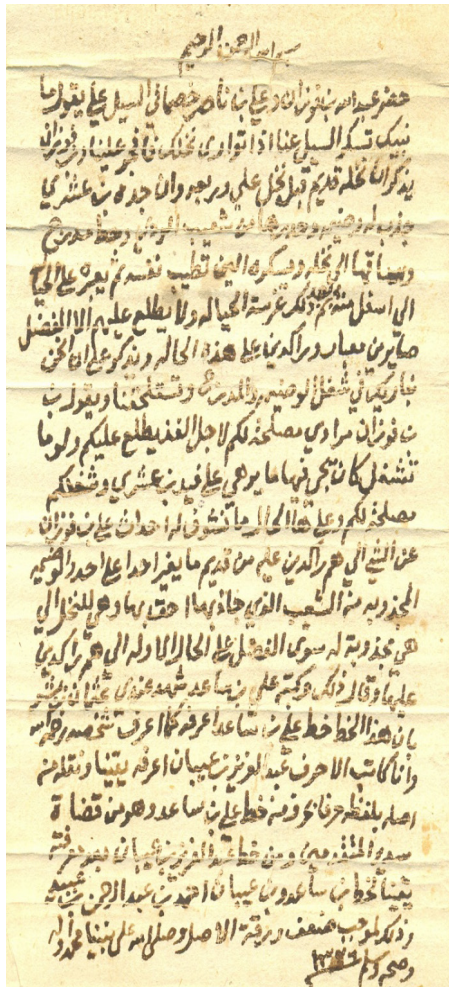 بسم الله الرحمن الرحيم
حضر عبدالله بن فوزان وعلي بن ناصر خصما في السيل علي يقول ما
نبيك تسكر السيل عنا اذا توازى نخلك فافجر علينا وبن فوزان
يذكر ان نخله قديم قبل نخل علي وربعه وان جده بن عشري
جذب له وضيمه من شعيب
الى نخله ويسكره الين تطيب نفسه ثم يفجره على الحيا
الى اسفل منه ثم بعد ذلك غرسة الحياله ولا يطلع عليه الا الفضل
صايرين بعبار وراكدين على هذه الحاله ويذكر علي ان احن
في شغل الوضيمه ويقول بن
بن فوزان مراوي مصلحة لكم لاجل الفضل يطلع عليكم ولو ما
تشتغلي كان فيها ما يرهي على فيد بن عشري وشغلكم
مصلحة لكم وعلى هذا الحال ما نشوف له احداث علي بن فوزان
عن الشي الي هم راكدين عليه من قديم ما يغير احدا على احد والوضيمه
المجذوبه من الشعيب الذي جاذبها احق بها وهي للنخل الي
هي مجذوبة له سوى الفضل على الحال الاوله الي هم راكدين
عليها وقال ذلك وكتبه علي بن ساعد شهد عندي عثمان
بان هذا الخط خط علي بن ساعد اعرفه كما اعرف شخصه
وانا كاتب الاحرف عبد العزيز بن عيبان اعرفه يقينا ونقله من
اصله بلفظه حرفا بحرف من خط علي بن ساعد وهو من قضاة
سدير المتقدمين ومن خط عبد العزيز بن عيبان بعد معرفته
يقينا لخط بن ساعد وبن عيبان احمد بن عبد الرحمن بن
وذلك لموجب ضعف ورقة الاصل وصلى الله على نبينا محمد واله
وصحبه وسلم